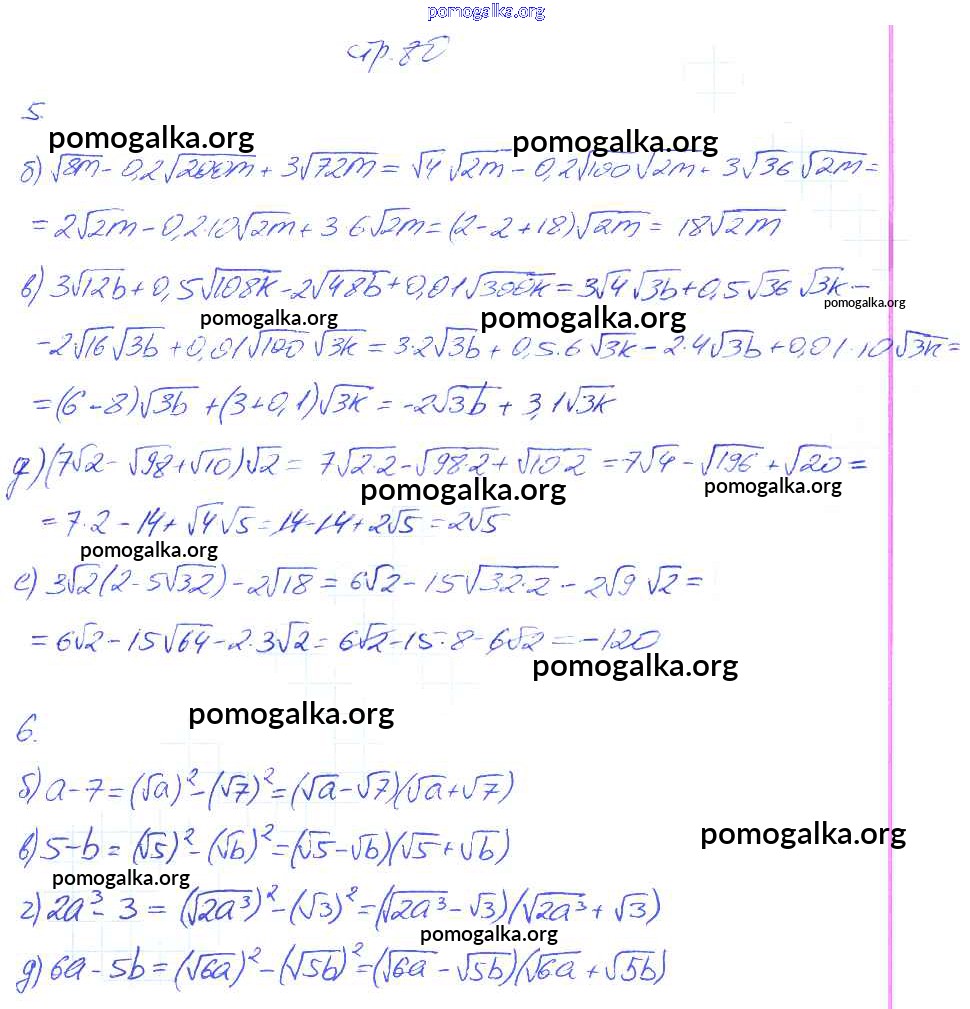 pomogalka.org
стр. 80
5.
pomogalka.org pomogalka.org
б) √8m - 0,2√200m + 3√72m = √4 √2m - 0,2√100 √2m + 3√36 √2m =
= 2√2m - 0,2·10√2m + 3 6√2m = (2-2+18)√2m = 18√2m
в) 3√12b + 0,5√108k - 2√48b + 0,01√300k = 3√4 √3b + 0,5√36 √3k -
pomogalka.org pomogalka.org pomogalka.org
-2√16 √3b + 0,01√100 √3k = 3·2√3b + 0,5·6√3k - 2·4√3b + 0,01·10√3k =
= (6-8)√3b + (3+0,1)√3k = -2√3b + 3,1√3k
д) (7√2 - √98 + √10)√2 = 7√2·2 - √98·2 + √10·2 = 7√4 - √196 + √20 =
pomogalka.org pomogalka.org
= 7·2 - 14 + √4√5 = 14-14+2√5 = 2√5
pomogalka.org
е) 3√2(2-5√32) - 2√18 = 6√2 - 15√32·2 - 2√9 √2 =
= 6√2 - 15√64 - 2·3√2 = 6√2 - 15·8 - 6√2 = -120
pomogalka.org
pomogalka.org
6.
б) a-7 = (√a)² - (√7)² = (√a - √7)(√a + √7)
pomogalka.org
в) 5-b = (√5)² - (√b)² = (√5 - √b)(√5 + √b)
pomogalka.org
г) 2a³ - 3 = (√2a³)² - (√3)² = (√2a³ - √3)(√2a³ + √3)
pomogalka.org
д) 6a - 5b = (√6a)² - (√5b)² = (√6a - √5b)(√6a + √5b)